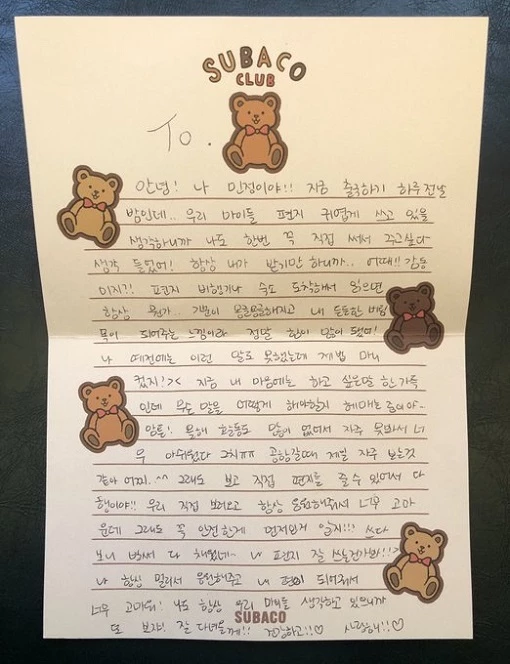 SUBACO
CLUB
To.
안녕! 나 민정이야!! 지금 출국하기 하루 전날
밤인데.. 우리 마이들 편지 귀엽게 쓰고 있을
생각하니까 나도 한번 꼭 직접 써서 주고싶다
생각 들었어! 항상 내가 받기만 하니까.. 어때!! 감동
이지?! 편지 비행기나 숙소 도착해서 읽으면
항상 뭔가.. 기분이 몽글몽글해지고 내 든든한 버팀
목이 되어주는 느낌이라 정말 힘이 많이 됐어!
나 예전에는 이런 말도 못했는데 제법 마니
컸지!>< 지금 내 마음에는 하고 싶은말 한가득
인데 무슨 말을 어떻게 해야할지 헤매는 중이야~
암튼! 올해 활동도 많이 없어서 자주 못봐서 너
무 아쉬웠다 그치ㅠㅠ 공항갈때 제일 자주 보는것
같아 어찌.^^ 그래도 보고 직접 편지를 줄 수 있어서 다
행이야!! 우리 직접 보러오고 항상 응원해줘서 너무 고마
운데 그래도 꼭 안전한게 먼저인거 알지!!! 쓰다
보니 벌써 다 채웠네~ 나 편지 잘 쓰는건가봐!!>
나 항상 멀리서 응원해주고 내 편이 되어줘서
너무 고마워! 나도 항상 우리 마이들 생각하고 있으니까
SUBACO
또 보자! 잘 다녀올게!! 건강하고!!♡ 사랑해!!♡